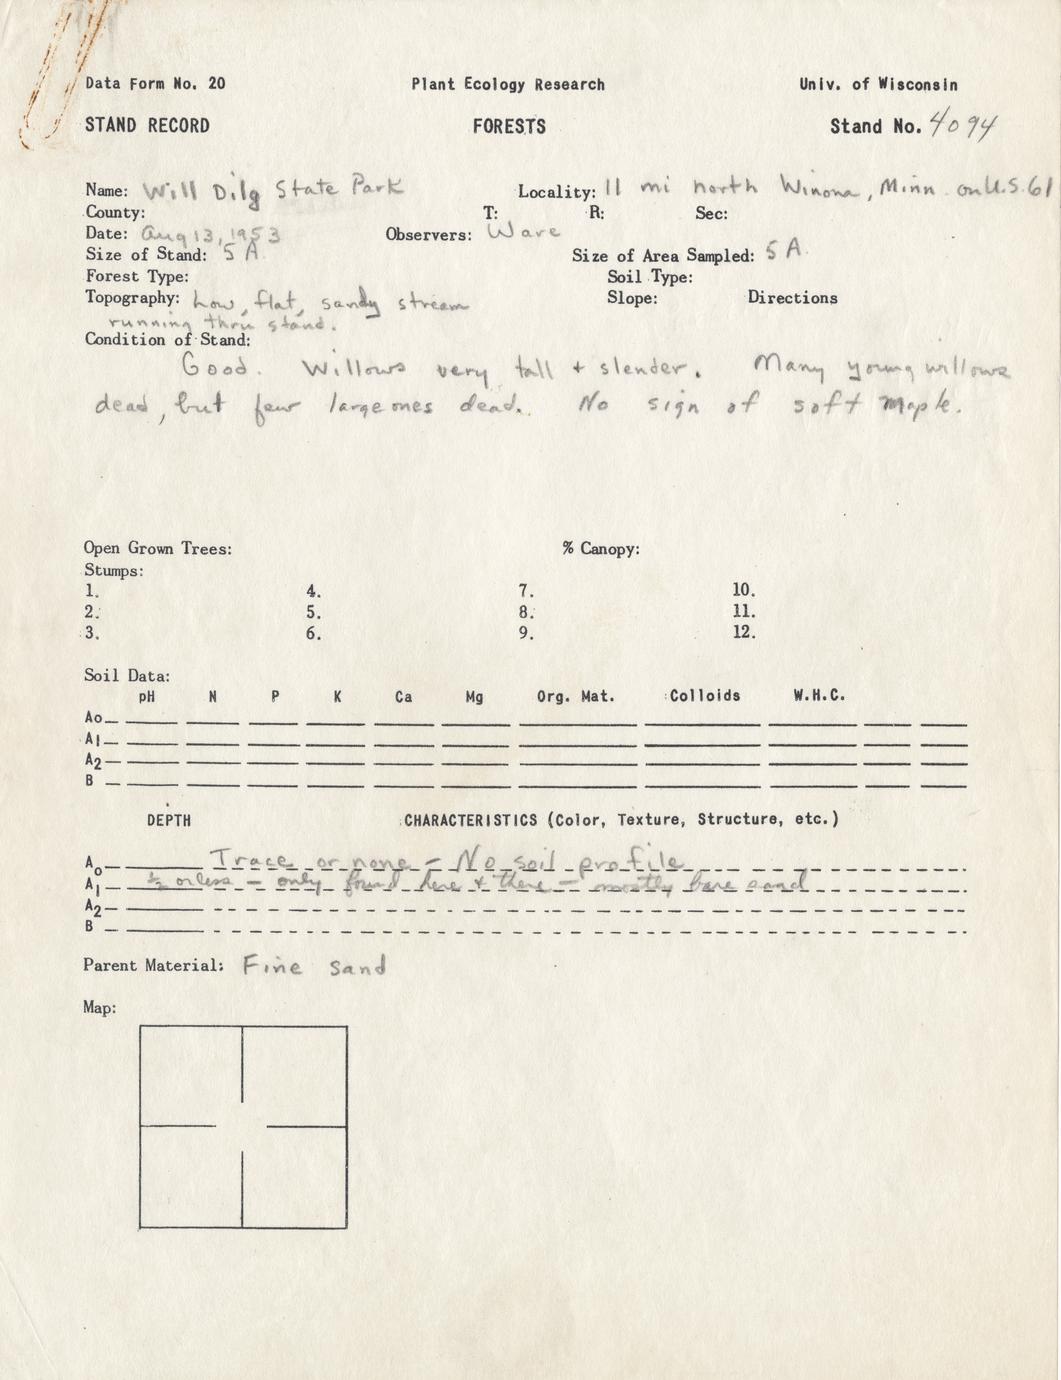 Data Form No. 20 Plant Ecology Research Univ. of Wisconsin
STAND RECORD FORESTS Stand No. 4094
Name: Will Dilg State Park Locality: 11 mi north Winona, Minn. on U.S. 61
County: T: R: Sec:
Date: Aug 13, 1953 Observers: Ware
Size of Stand: 5 A. Size of Area Sampled: 5 A.
Forest Type: Soil Type:
Topography: Low, flat, sandy stream Slope: Directions
running thru stand.
Condition of Stand:
Good. Willows very tall + slender. Many young willows
dead, but few large ones dead. No sign of soft maple.
Open Grown Trees: % Canopy:
Stumps:
1. 4. 7. 10.
2. 5. 8. 11.
3. 6. 9. 12.
Soil Data:
pH N P K Ca Mg Org. Mat. Colloids W.H.C.
Ao
A1
A2
B
DEPTH CHARACTERISTICS (Color, Texture, Structure, etc.)
Ao Trace or none - No soil profile
A1 ½ or less - only found here + there - mostly bare sand
A2
B
Parent Material: Fine sand
Map: